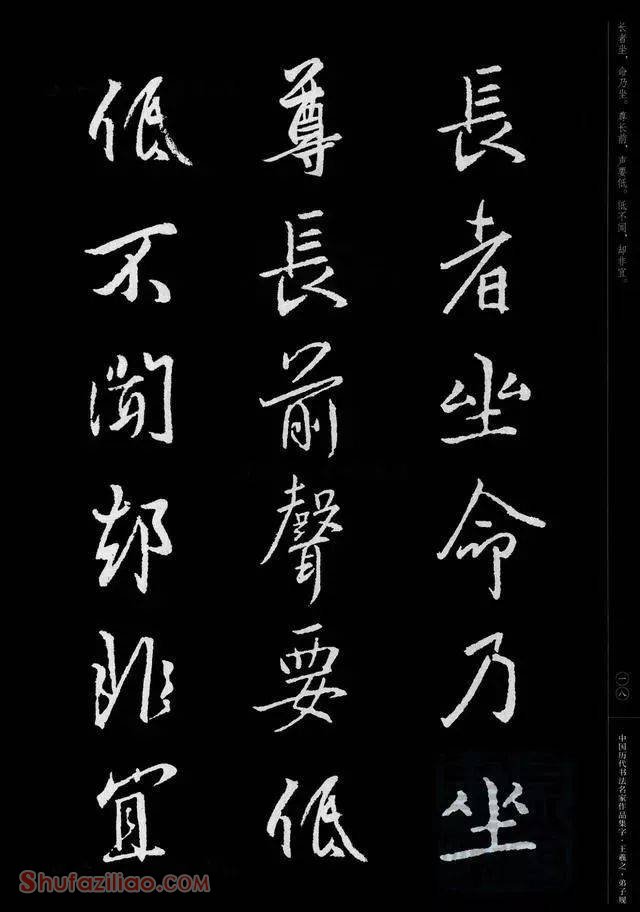 长者坐，命乃坐。尊长前，声要低。低不闻，却非宜。
長者坐命乃坐
尊長前聲要低
低不聞却非宜
一八
中国历代书法名家作品集字·王羲之·弟子规
Shufaziliao.com